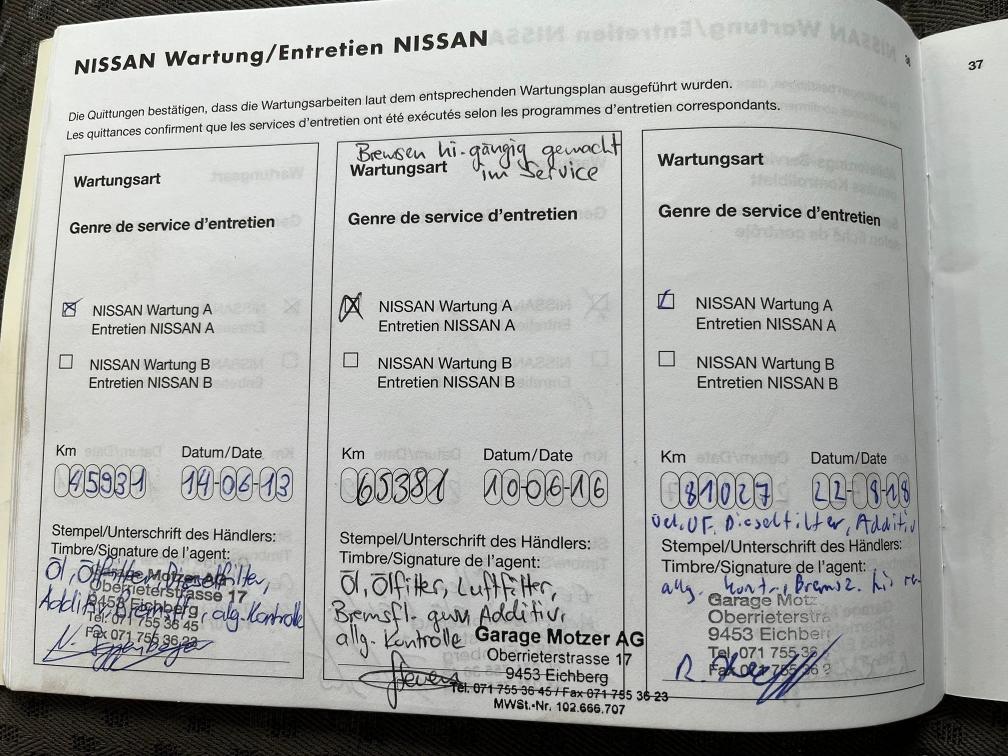 NISSAN Wartung/Entretien NISSAN
37
Die Quittungen bestätigen, dass die Wartungsarbeiten laut dem entsprechenden Wartungsplan ausgeführt wurden.
Les quittances confirment que les services d'entretien ont été exécutés selon les programmes d'entretien correspondants.
Wartungsart
Genre de service d'entretien
NISSAN Wartung A
Entretien NISSAN A
NISSAN Wartung B
Entretien NISSAN B
Km Datum/Date
45931 14-06-13
Stempel/Unterschrift des Händlers:
Timbre/Signature de l'agent:
Öl, Ölfilter, Dieselfilter,
Motzer AG
Oberrieterstrasse 17
Additiv, allg. Kontrolle
9453 Eichberg
Tel. 071 755 36 45
Fax 071 755 36 23
Bremsen hi. gängig gemacht
Wartungsart im Service
Genre de service d'entretien
NISSAN Wartung A
Entretien NISSAN A
NISSAN Wartung B
Entretien NISSAN B
Km Datum/Date
65381 10-06-16
Stempel/Unterschrift des Händlers:
Timbre/Signature de l'agent:
Öl, Ölfilter, Luftfilter,
Bremsfl. Additiv,
allg. Kontrolle
Garage Motzer AG
Oberrieterstrasse 17
9453 Eichberg
Tel. 071 755 36 45 / Fax 071 755 36 23
MWSt.-Nr. 102.666.707
Wartungsart
Genre de service d'entretien
NISSAN Wartung A
Entretien NISSAN A
NISSAN Wartung B
Entretien NISSAN B
Km Datum/Date
81027 22-8-18
Dieselfilter, Additiv
Stempel/Unterschrift des Händlers:
Timbre/Signature de l'agent:
allg. Kontr., Bremsz. hi
Garage Motz
Oberrieterstra
9453 Eichber
Tel. 071 755 36
Fax 071 755 36 2